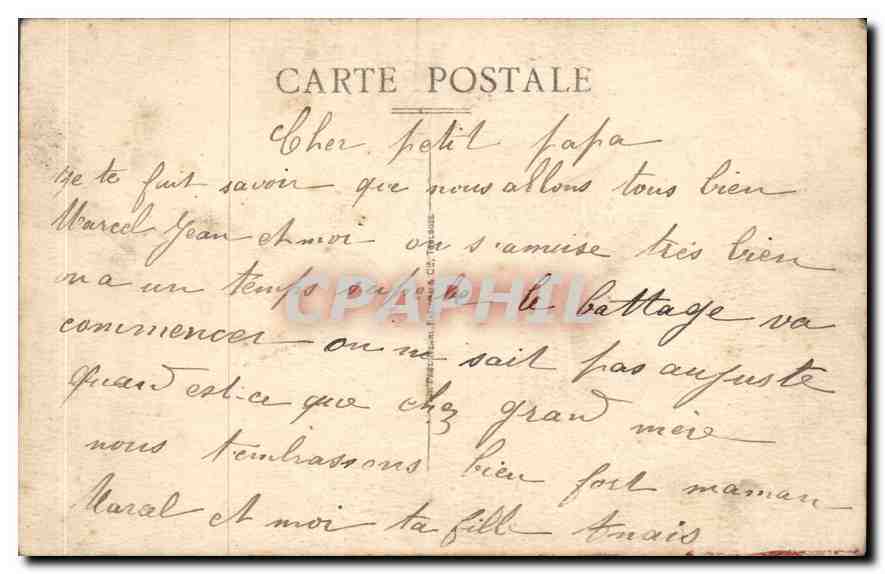 CARTE POSTALE
Cher petit papa
je te fait savoir que nous allons tous bien
Marcel Jean et moi on s'amuse très bien
on a un temps superbe le battage va
commencer on ne sait pas auguste
quand est-ce que chez grand mère
nous t'embrassons bien fort maman
Marcel et moi ta fille Anais
CPAPHIL